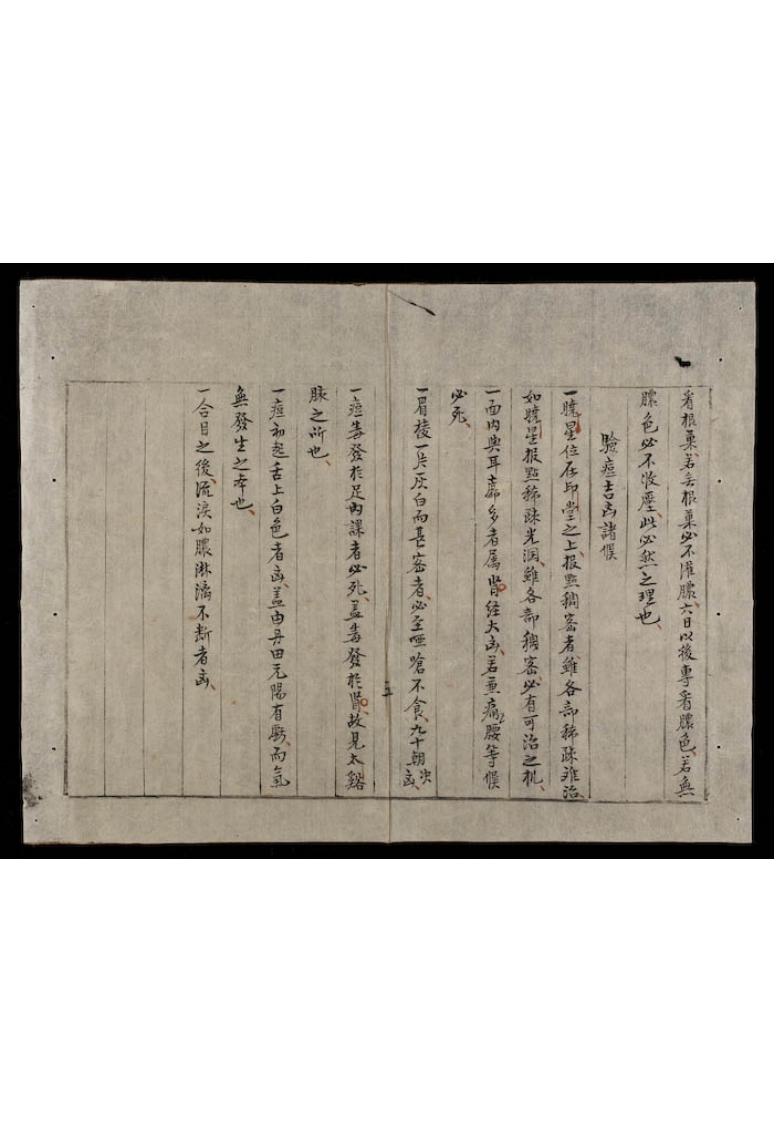 一看根窠、若無根窠必不灌膿、六日以後專看膿色、若無
膿色必不收靨、此必然之理也、
驗痘吉凶諸候
一曉星位在印堂之上、报點稠密者雖各部稀疎难治、
如曉星报點稀疎光潤、雖各部稠密、必有可治之机、
一面内與耳廓多者属腎经大凶、若兼痛腰等候
必死、
一眉棱一片灰白而甚密者、必至啞嗆不食、九十朝决凶、
一痘毒發於足内踝者必死、盖毒發於腎、故見太谿
脉之所也、
三
一痘初起舌上白色者凶、盖由丹田元陽有虧、而氣
無發生之本也、
一合目之後、流淚如膿淋漓不断者凶、